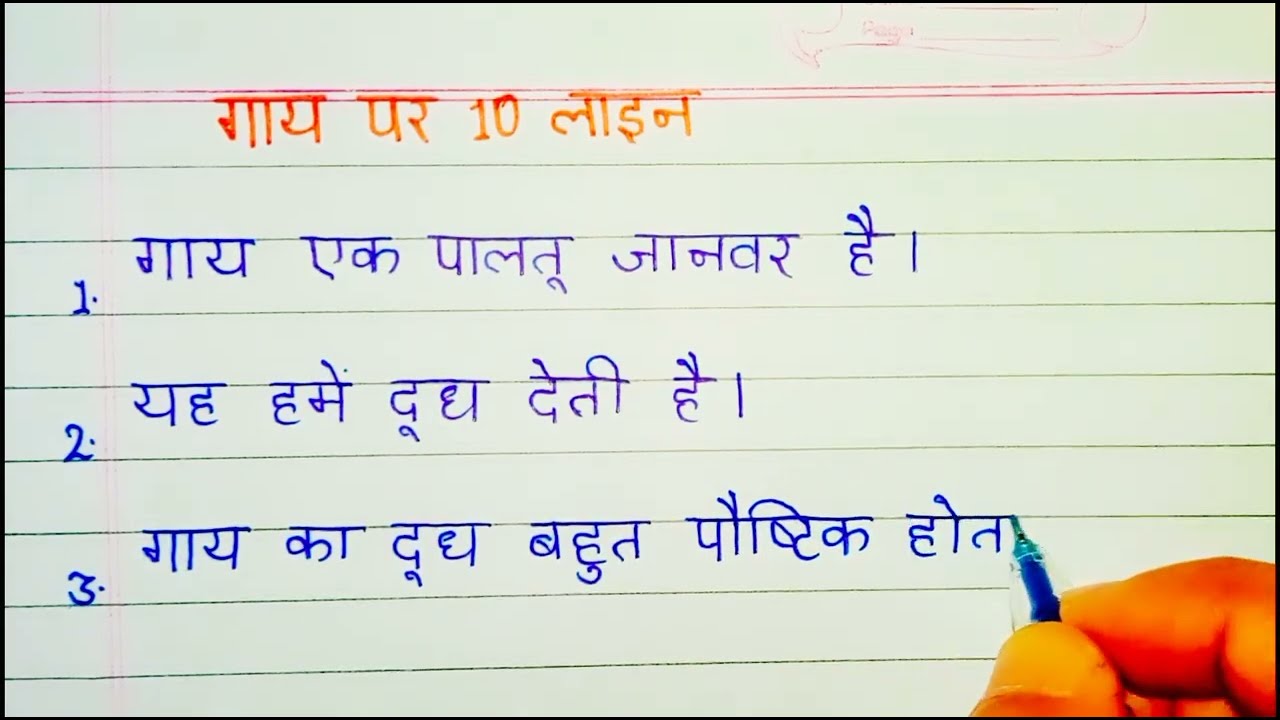 Page
गाय पर 10 लाइन
1. गाय एक पालतू जानवर है।
2. यह हमें दूध देती है।
3. गाय का दूध बहुत पौष्टिक होत